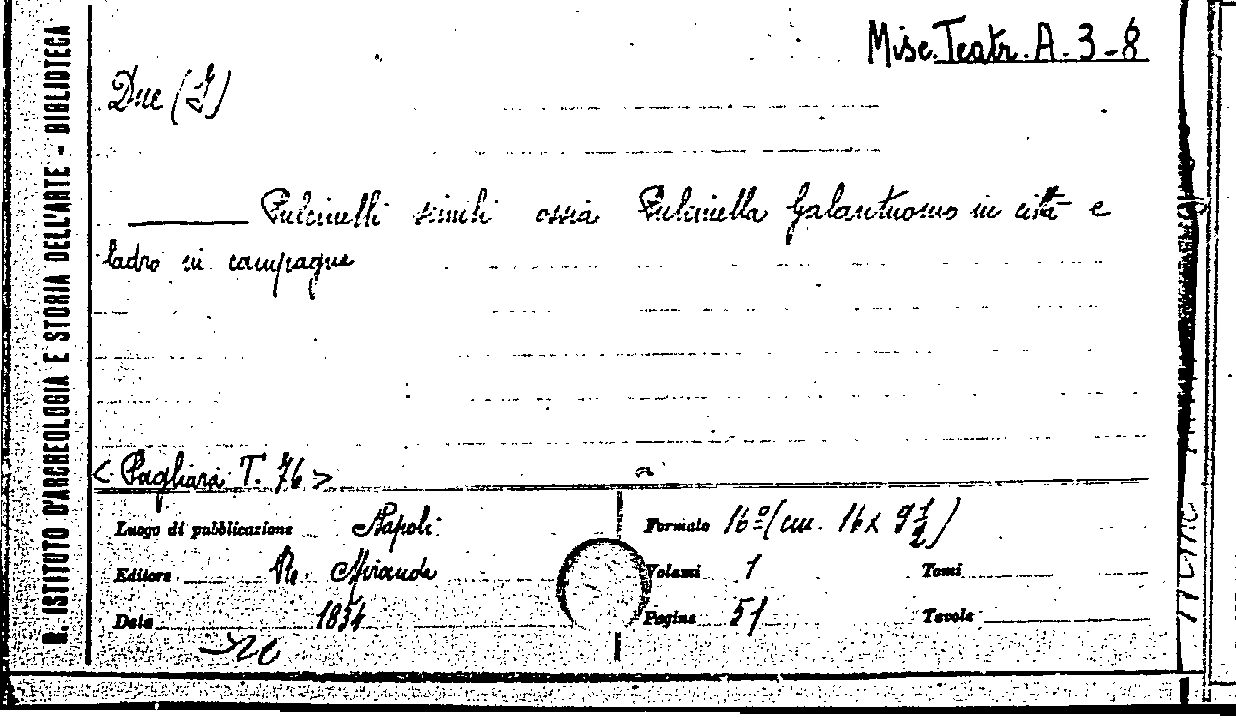 R. ISTITUTO D'ARCHEOLOGIA E STORIA DELL'ARTE - BIBLIOTECA
Misc. Teatr. A. 3-8
Due (I)
Pulcinelli simili ossia Pulcinella galantuomo in città e
ladro in campagna
< Pagliara T. 76 >
Luogo di pubblicazione Napoli Formato 16º (cm. 16 x 9 1/2)
Editore Miranda Volumi 1 Tomi
Data 1834 Pagine 51 Tavole